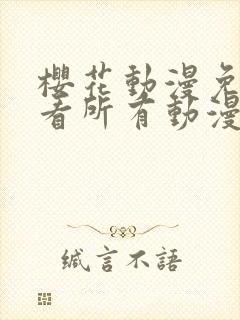 櫻花動漫免
看所有動漫
缄言不語